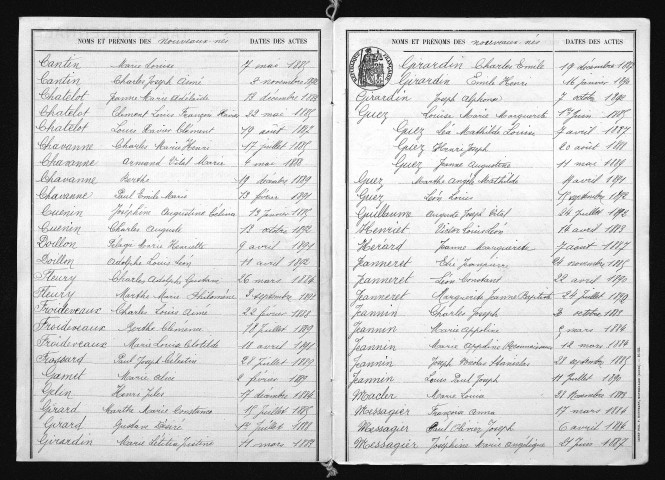 NOMS ET PRÉNOMS DES nouveaux-nés DATES DES ACTES
Cantin Marie Louise 7 mai 1885
Cantin Charles Joseph Aimé 8 novembre
Chatelot Jeanne Marie Adélaïde 18 décembre
Chatelot Clément Louis François 23 mai 1885
Chatelot Louis Xavier Clément 19 août 1887
Chavanne Charles Marie Henri 17 juillet 1885
Chavanne Armand Vital Marie 4 mai 1888
Chavanne Berthe 19 décembre 1889
Chavanne Paul Emile Marie 13 février 1891
Cuenin Joséphine Augustine 13 janvier
Cuenin Charles Auguste 13 octobre 1892
Doillon Marie Henriette 9 avril 1891
Doillon Adolphe Louis Léon 11 avril 1892
Fleury Charles Adolphe Gustave 26 mars 1886
Fleury Marthe Marie Philomène 3 septembre
Froideveaux Charles Louis Aimé 22 février 1888
Froideveaux Berthe Clémence 18 juillet 1889
Froideveaux Marie Louise Clotilde 10 avril 1891
Frossard Paul Joseph Célestin 28 juillet 1889
Gamet Marie 2 février
Gelin Henri Jules 17 décembre 1886
Girard Marthe Marie Constance 15 juillet 1885
Girard Gustave Désiré juillet 1888
Girardin Marie Létitia Justine 11 mars
NOMS ET PRÉNOMS DES nouveaux-nés DATES DES ACTES
Girardin Charles Emile 19 décembre
Girardin Emile Henri 16 janvier
Girardin Joseph Alphonse 7 octobre
Guez Louise Marie Marguerite 1er juin 1885
Guez Léa Mathilde Louise 7 avril 1887
Guez Henri Joseph 20 août 1888
Guez Jeanne Augustine 11 mai
Guez Marthe Angèle Mathilde avril 1891
Guez Léon Louis 15 septembre 1892
Guillaume Auguste Joseph Vital 24 juillet
Henriet Victor Louis Léon 14 avril 1888
Hérard Jeanne Marguerite 7 août 1887
Jeanneret 24 novembre 1885
Jeanneret Léon Constant 22 avril 1890
Jeanneret Marguerite Jeanne Baptiste 24 juillet 1892
Jeannin Charles Joseph 3 octobre
Jeannin Marie Appoline 9 mars 1886
Jeannin Marie Appoline 12 mars 1886
Jeannin Joseph Nicolas Stanislas 21 septembre
Jeannin Louis Paul Joseph 11 juillet 1890
Macler Marie Louise 28 novembre 1888
Messagier François 17 mars 1886
Messagier Paul Olivier Joseph 6 avril 1886
Messagier Joséphine Marie Angélique 21 juin 1887